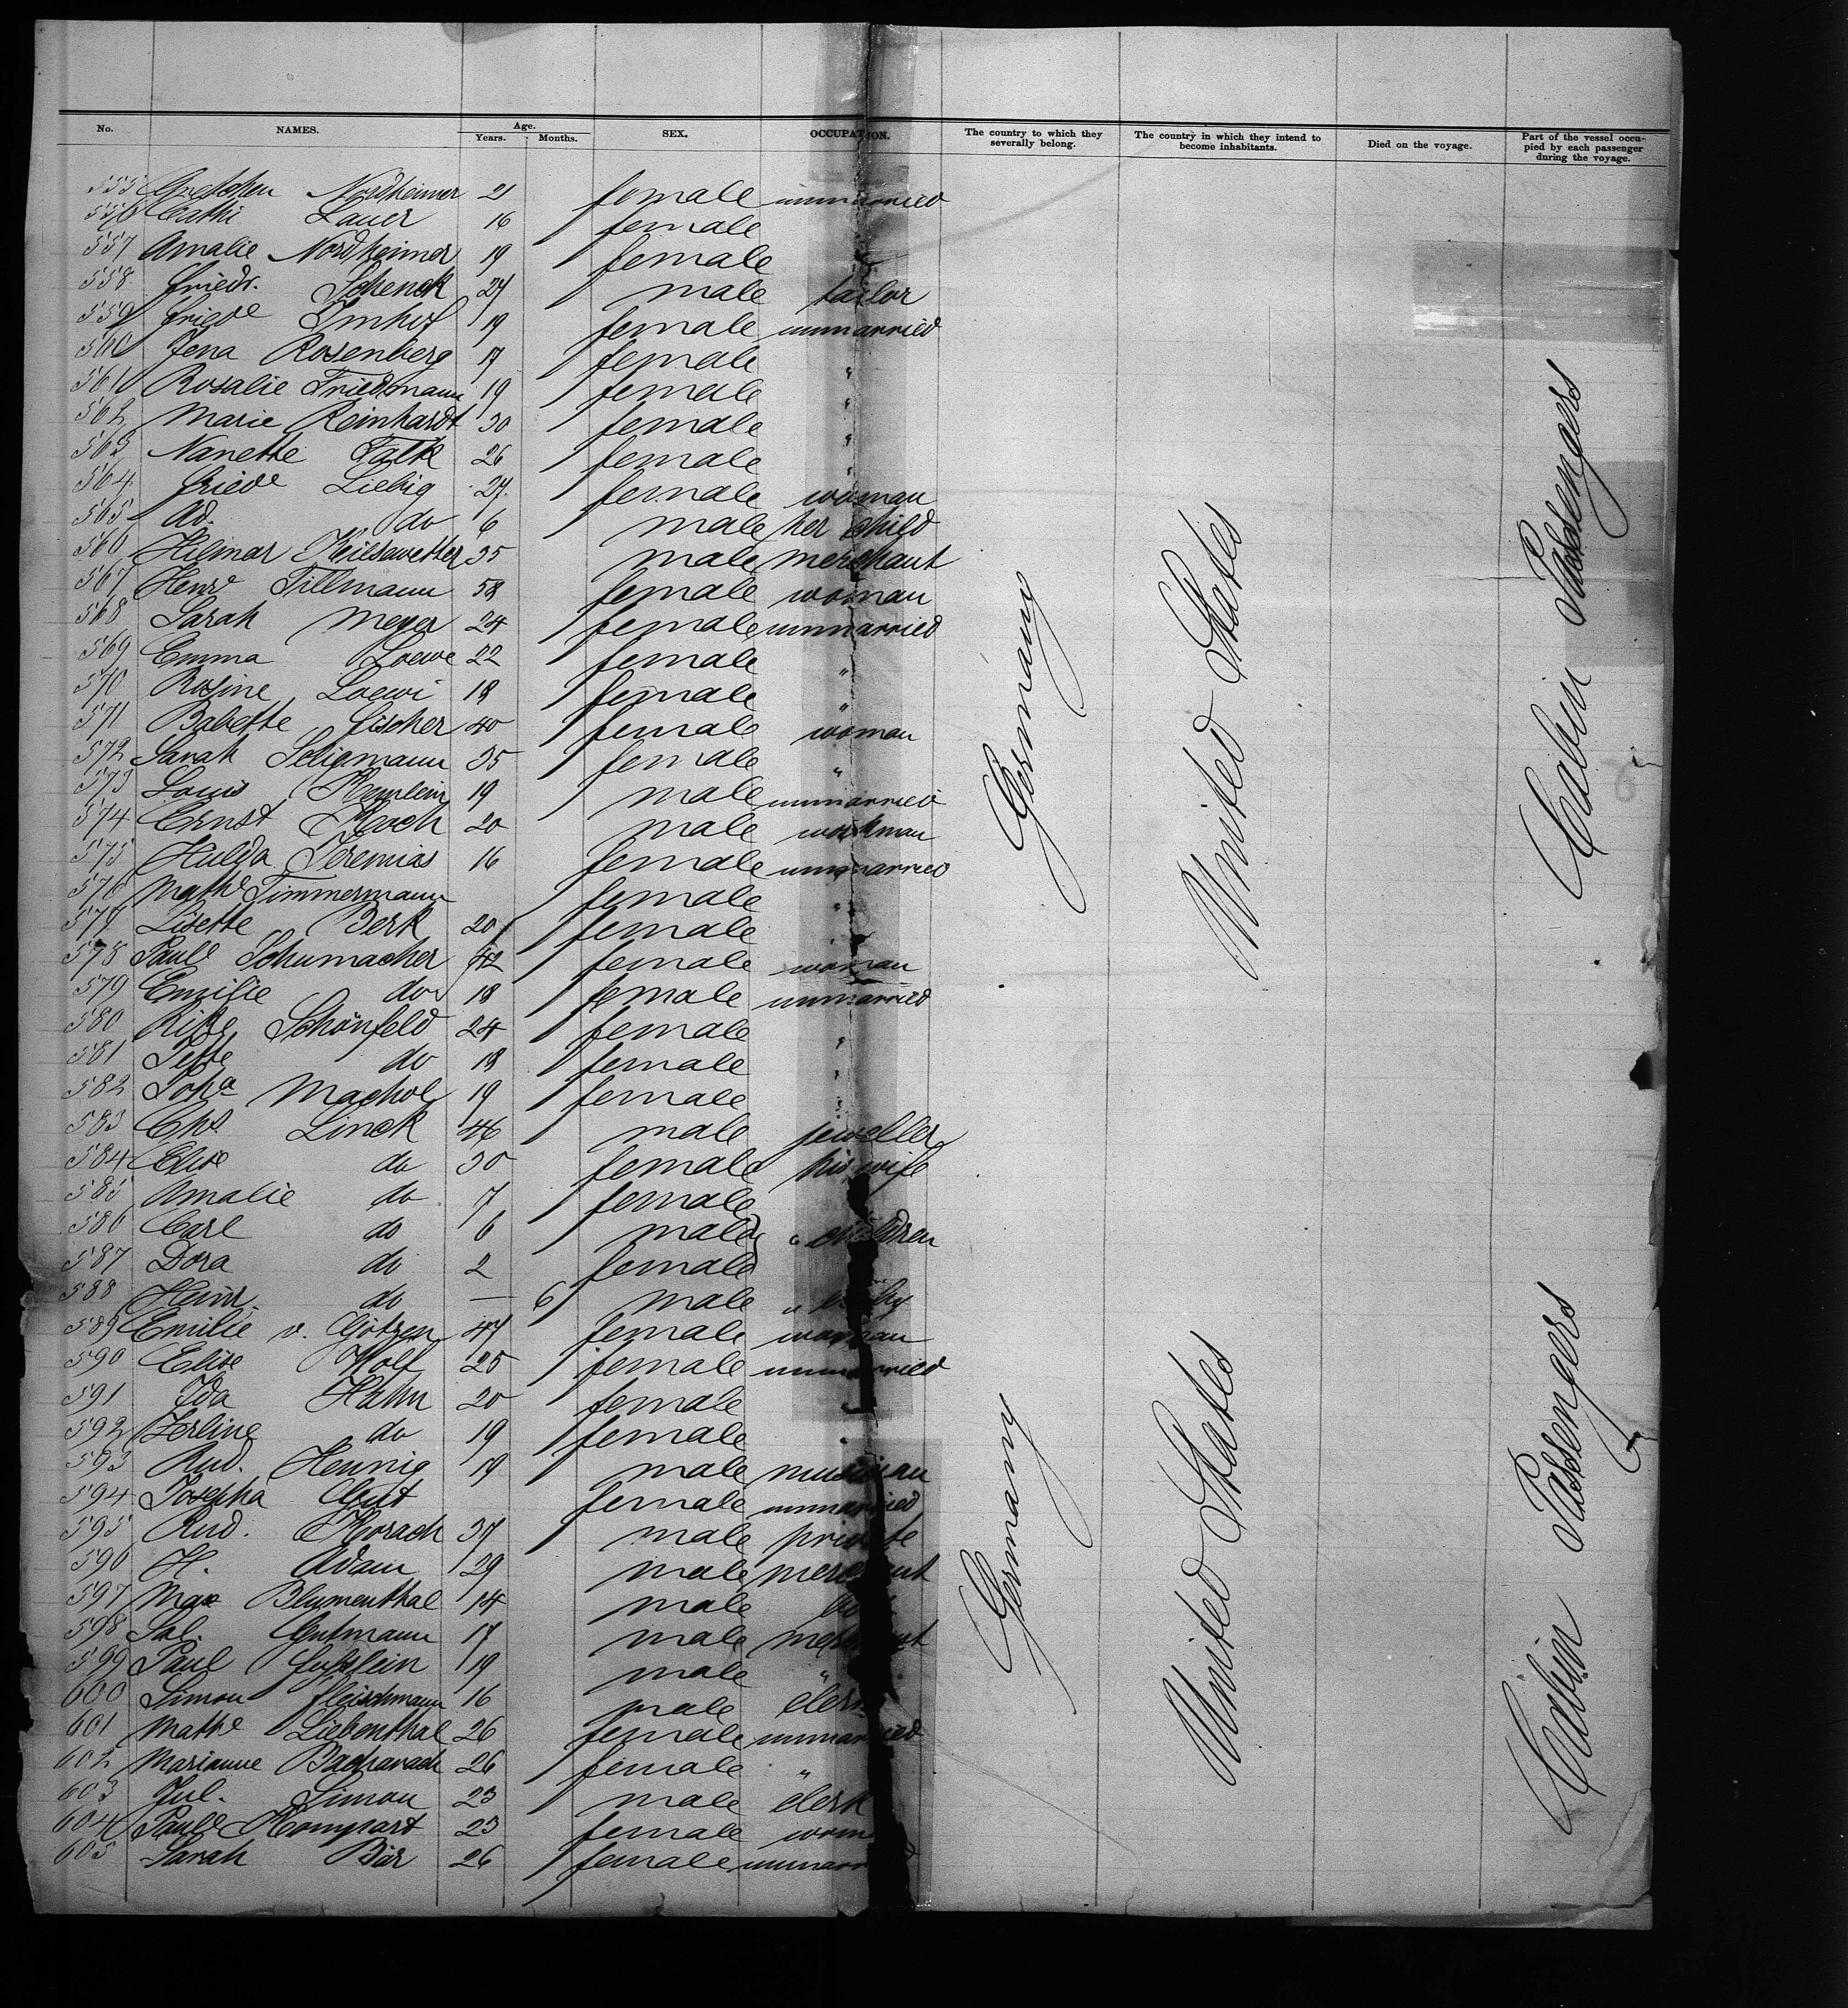 No. NAMES. Age. Years. Months. SEX. OCCUPATION. The country to which they severally belong. The country in which they intend to become inhabitants. Died on the voyage. Part of the vessel occupied by each passenger during the voyage.
555 Gretchen Nordheimer 21 female unmarried
556 Cathi Lauer 16 female
557 Amalie Nordheimer 19 female "
558 Friedr. Schenck 27 male tailor
559 Friede Imhof 19 female unmarried
560 Jena Rosenberg 17 female "
561 Rosalie Friedmann 19 female "
562 Marie Reinhardt 30 female "
563 Nanette Falk 26 female "
564 Friede Liebig 27 female woman
565 Ad. do 6 male her child
566 Hilmar 35 male merchant
567 Henre Tillmann 58 female woman
568 Sarah Meyer 24 female unmarried
569 Emma Loewe 22 female "
570 Rosine Loewi 18 female "
571 Babette Fischer 40 female woman
572 Sarah Seligmann 35 female "
573 Louis 19 male unmarried
574 Ernst Koch 20 male workman
575 Hulda Jeremias 16 female unmarried
576 Mathe Timmermann female "
577 Lisette Berk 20 female
578 Paule Schumacher 42 female woman
579 Emilie do 18 female unmarried
580 Rike Schönfeld 24 female "
581 Jette do 18 female "
582 Joha Machol 19 female "
583 Chs. Linck 46 male jeweller
584 Elise do 30 female his wife
585 Amalie do 7 female
586 Carl do 6 male " children
587 Dora do 2 female
588 Heinr. do — 6 male " baby
589 Emilie v. Götzen 47 female woman
590 Elise Wolf 25 female unmarried
591 Ida Hahn 20 female
592 Zerline do 19 female "
593 Rud. Hennig 19 male musician
594 Josepha Gut female unmarried
595 Rud. Horach 37 male private
596 H. Adam 29 male merchant
597 Max Blumenthal 14 male
598 Sal. Gutmann 17 male merchant
599 Paul 19 male "
600 Simon Fleischmann 16 male clerk
601 Mathe Liebenthal 26 female unmarried
602 Marianne Bacharach 26 female "
603 Jul. Simon 23 male clerk
604 Paule Kompart 23 female
605 Sarah Bär 26 female
Germany United States Cabin Passengers
Germany United States Cabin Passengers